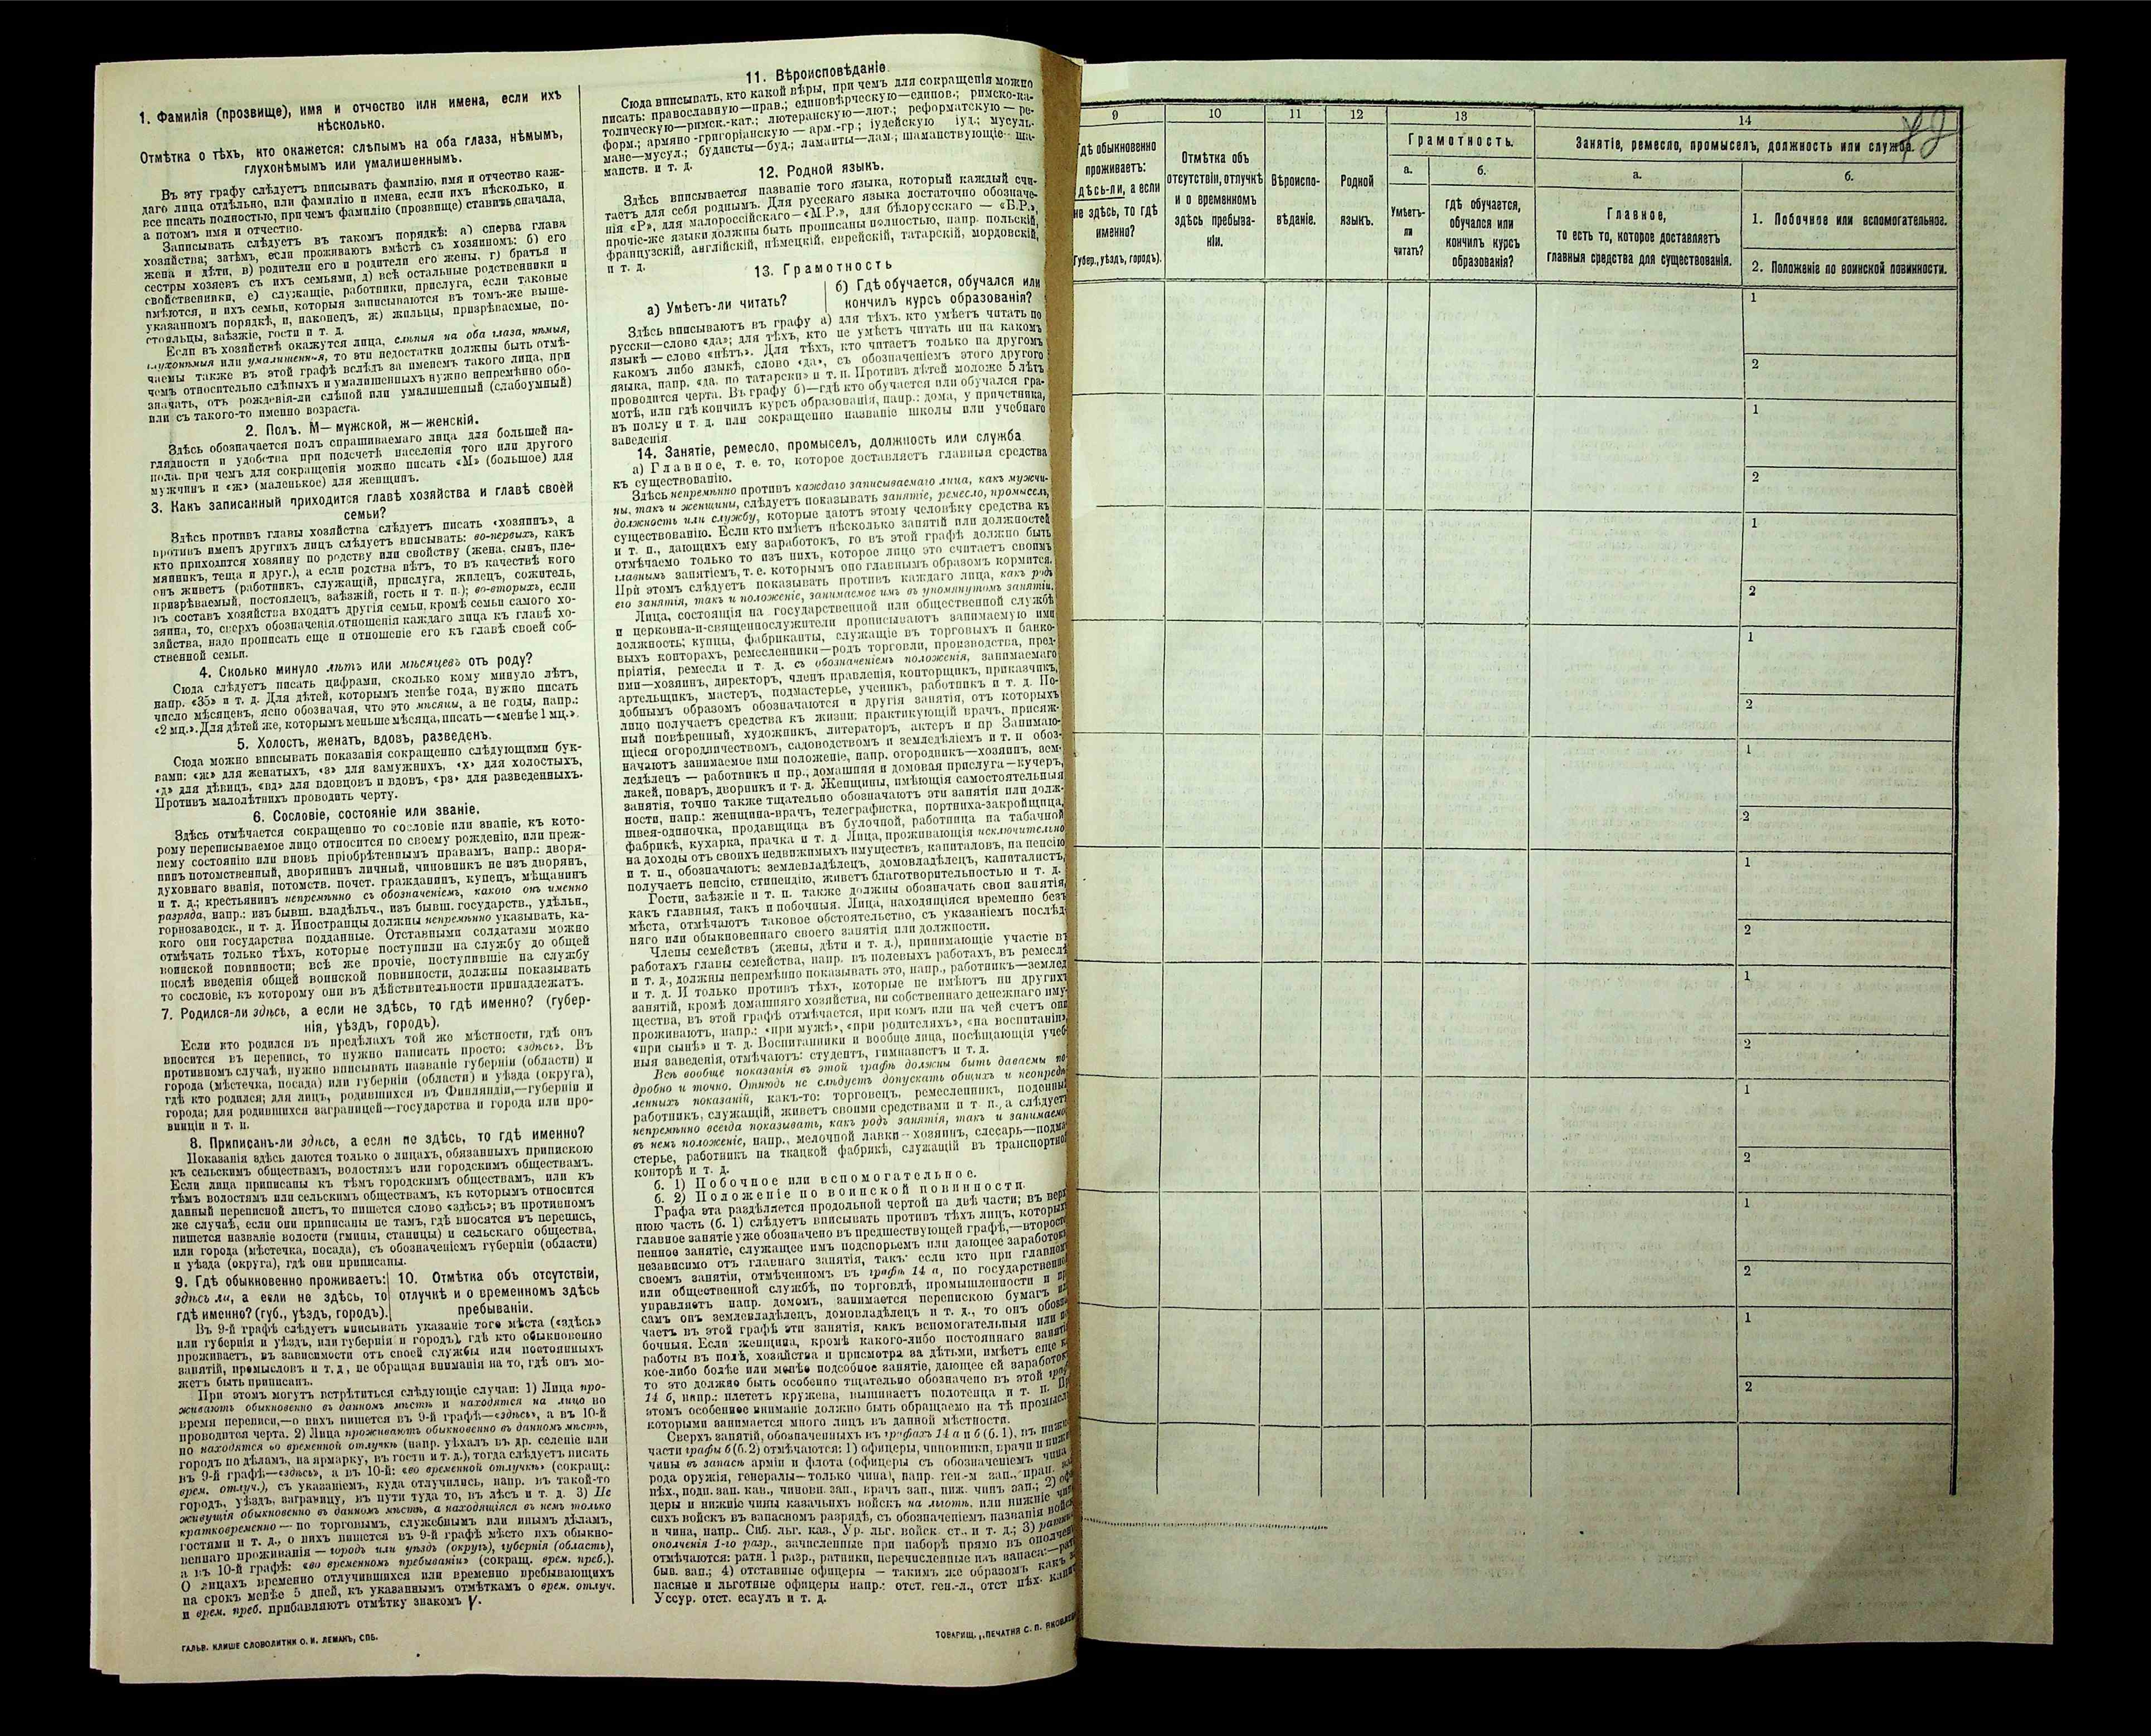 1. Фамилія (прозвище), имя и отчество или имена, если ихъ
нѣсколько.
Отмѣтка о тѣхъ, кто окажется: слѣпымъ на оба глаза, нѣмымъ,
глухонѣмымъ или умалишеннымъ.
Въ эту графу слѣдуетъ вписывать фамилію, имя и отчество каж-
даго лица отдѣльно, или фамилію и имена, если ихъ нѣсколько, и
все писать полностью, при чемъ фамилію (прозвище) ставить сначала,
а потомъ имя и отчество.
Записывать слѣдуетъ въ такомъ порядкѣ: а) сперва глава
хозяйства; затѣмъ, если проживаютъ вмѣстѣ съ хозяиномъ: б) его
жена и дѣти, в) родители его и родители его жены, г) братья и
сестры хозяевъ съ ихъ семьями, д) всѣ остальные родственники и
свойственники, е) служащіе, работники, прислуга, если таковые
имѣются, и ихъ семьи, которыя записываются въ томъ-же выше-
указанномъ порядкѣ, и, наконецъ, ж) жильцы, призрѣваемые, по-
стояльцы, заѣзжіе, гости и т. д.
Если въ хозяйствѣ окажутся лица, слѣпыя на оба глаза, нѣмыя,
глухонѣмыя или умалишенныя, то эти недостатки должны быть отмѣ-
чаемы также въ этой графѣ вслѣдъ за именемъ такого лица, при
чемъ относительно слѣпыхъ и умалишенныхъ нужно непремѣнно обо-
значать, отъ рожденія-ли слѣпой или умалишенный (слабоумный)
или съ такого-то именно возраста.
2. Полъ. М— мужской, ж—женскій.
Здѣсь обозначается полъ спрашиваемаго лица для большей на-
глядности и удобства при подсчетѣ населенія того или другого
пола. при чемъ для сокращенія можно писать «М» (большое) для
мужчинъ и «ж» (маленькое) для женщинъ.
3. Какъ записанный приходится главѣ хозяйства и главѣ своей
семьи?
Здѣсь противъ главы хозяйства слѣдуетъ писать «хозяинъ», а
противъ именъ другихъ лицъ слѣдуетъ вписывать: во-первыхъ, какъ
кто приходится хозяину по родству или свойству (жена, сынъ, пле-
мянникъ, теща и друг.), а если родства нѣтъ, то въ качествѣ кого
онъ живетъ (работникъ, служащій, прислуга, жилецъ, сожитель,
призрѣваемый, постоялецъ, заѣзжій, гость и т. п.); во-вторыхъ, если
въ составъ хозяйства входятъ другія семьи, кромѣ семьи самого хо-
зяина, то, сверхъ обозначенія отношенія каждаго лица къ главѣ хо-
зяйства, надо прописать еще и отношеніе его къ главѣ своей соб-
ственной семьи.
4. Сколько минуло лѣтъ или мѣсяцевъ отъ роду?
Сюда слѣдуетъ писать цифрами, сколько кому минуло лѣтъ,
напр. «35» и т. д. Для дѣтей, которымъ менѣе года, нужно писать
число мѣсяцевъ, ясно обозначая, что это мѣсяцы, а не годы, напр.:
«2 мц.». Для дѣтей же, которымъ меньше мѣсяца, писать—«менѣе 1 мц.».
5. Холостъ, женатъ, вдовъ, разведенъ.
Сюда можно вписывать показанія сокращенно слѣдующими бук-
вами: «ж» для женатыхъ, «з» для замужнихъ, «х» для холостыхъ,
«д» для дѣвицъ, «вд» для вдовцовъ и вдовъ, «рз» для разведенныхъ.
Противъ малолѣтнихъ проводить черту.
6. Сословіе, состояніе или званіе.
Здѣсь отмѣчается сокращенно то сословіе или званіе, къ кото-
рому переписываемое лицо относится по своему рожденію, или преж-
нему состоянію или вновь пріобрѣтеннымъ правамъ, напр.: дворя-
нинъ потомственный, дворянинъ личный, чиновникъ не изъ дворянъ,
духовнаго званія, потомств. почет. гражданинъ, купецъ, мѣщанинъ
и т. д.; крестьянинъ непремѣнно съ обозначеніемъ, какого онъ именно
разряда, напр.: изъ бывш. владѣльч., изъ бывш. государств., удѣльн.,
горнозаводск., и т. д. Иностранцы должны непремѣнно указывать, ка-
кого они государства подданные. Отставными солдатами можно
отмѣчать только тѣхъ, которые поступили на службу до общей
воинской повинности; всѣ же прочіе, поступившіе на службу
послѣ введенія общей воинской повинности, должны показывать
то сословіе, къ которому они въ дѣйствительности принадлежатъ.
7. Родился-ли здѣсь, а если не здѣсь, то гдѣ именно? (губер-
нія, уѣздъ, городъ).
Если кто родился въ предѣлахъ той же мѣстности, гдѣ онъ
вносится въ перепись, то нужно написать просто: «здѣсь». Въ
противномъ случаѣ, нужно вписывать названіе губерніи (области) и
города (мѣстечка, посада) или губерніи (области) и уѣзда (округа),
гдѣ кто родился; для лицъ, родившихся въ Финляндіи,—губерніи и
города; для родившихся заграницей—государства и города или про-
винціи и т. п.
8. Приписанъ-ли здѣсь, а если не здѣсь, то гдѣ именно?
Показанія здѣсь даются только о лицахъ, обязанныхъ припискою
къ сельскимъ обществамъ, волостямъ или городскимъ обществамъ.
Если лица приписаны къ тѣмъ городскимъ обществамъ, или къ
тѣмъ волостямъ или сельскимъ обществамъ, къ которымъ относится
данный переписной листъ, то пишется слово «здѣсь»; въ противномъ
же случаѣ, если они приписаны не тамъ, гдѣ вносятся въ перепись,
пишется названіе волости (гмины, станицы) и сельскаго общества,
или города (мѣстечка, посада), съ обозначеніемъ губерніи (области)
и уѣзда (округа), гдѣ они приписаны.
9. Гдѣ обыкновенно проживаетъ:
здѣсь ли, а если не здѣсь, то
гдѣ именно? (губ., уѣздъ, городъ).
10. Отмѣтка объ отсутствіи,
отлучкѣ и о временномъ здѣсь
пребываніи.
Въ 9-й графѣ слѣдуетъ вписывать указаніе того мѣста («здѣсь»
или губернія и уѣздъ, или губернія и городъ), гдѣ кто обыкновенно
проживаетъ, въ зависимости отъ своей службы или постоянныхъ
занятій, промысловъ и т. д, не обращая вниманія на то, гдѣ онъ мо-
жетъ быть приписанъ.
При этомъ могутъ встрѣтиться слѣдующіе случаи: 1) Лица про-
живаютъ обыкновенно въ данномъ мѣстѣ и находятся на лицо во
время переписи,—о нихъ пишется въ 9-й графѣ—«здѣсь», а въ 10-й
проводится черта. 2) Лица проживаютъ обыкновенно въ данномъ мѣстѣ,
но находятся во временной отлучкѣ (напр. уѣхалъ въ др. селеніе или
городъ по дѣламъ, на ярмарку, въ гости и т. д.), тогда слѣдуетъ писать
въ 9-й графѣ—«здѣсь», а въ 10-й: «во временной отлучкѣ» (сокращ.:
врем. отлуч.), съ указаніемъ, куда отлучились, напр. въ такой-то
городъ, уѣздъ, заграницу, въ пути туда то, въ лѣсъ и т. д. 3) Не
живущія обыкновенно въ данномъ мѣстѣ, а находящіяся въ немъ только
кратковременно — по торговымъ, служебнымъ или инымъ дѣламъ,
гостями и т. д., о нихъ пишется въ 9-й графѣ мѣсто ихъ обыкно-
веннаго проживанія — городъ или уѣздъ (округъ), губернія (область),
а въ 10-й графѣ: «во временномъ пребываніи» (сокращ. врем. преб.).
О лицахъ временно отлучившихся или временно пребывающихъ
на срокъ менѣе 5 дней, къ указаннымъ отмѣткамъ о врем. отлуч.
и врем. преб. прибавляютъ отмѣтку знакомъ V.
ГАЛЬВ. КЛИШЕ СЛОВОЛИТНИ О. И. ЛЕМАНЪ, СПБ.
11. Вѣроисповѣданіе
Сюда вписывать, кто какой вѣры, при чемъ для сокращенія можно
писать: православную—прав.; единовѣрческую—единов.; римско-ка-
толическую—римск.-кат.; лютеранскую—лют.; реформатскую — ре-
форм.; армяно-григоріанскую — арм.-гр; іудейскую іуд.; мусуль-
мане—мусул.; буддисты—буд.; ламаиты—лам.; шаманствующіе—ша-
манств. и т. д.
12. Родной языкъ.
Здѣсь вписывается названіе того языка, который каждый счи-
таетъ для себя роднымъ. Для русскаго языка достаточно обозначе-
нія «Р», для малороссійскаго—«М.Р.», для бѣлорусскаго — «Б.Р.»,
прочіе-же языки должны быть прописаны полностью, напр. польскій,
французскій, англійскій, нѣмецкій, еврейскій, татарскій, мордовскій,
и т. д.
13. Грамотность
а) Умѣетъ-ли читать?
б) Гдѣ обучается, обучался или
кончилъ курсъ образованія?
Здѣсь вписываютъ въ графу а) для тѣхъ. кто умѣетъ читать по
русски—слово «да»; для тѣхъ, кто не умѣетъ читать ни на какомъ
языкѣ — слово «нѣтъ». Для тѣхъ, кто читаетъ только на другомъ
какомъ либо языкѣ, слово «да», съ обозначеніемъ этого другого
языка, напр. «да. по татарски» и т. п. Противъ дѣтей моложе 5 лѣтъ
проводится черта. Въ графу б)—гдѣ кто обучается или обучался гра-
мотѣ, или гдѣ кончилъ курсъ образованія, напр.: дома, у причетника,
въ полку и т. д. или сокращенно названіе школы или учебнаго
заведенія.
14. Занятіе, ремесло, промыселъ, должность или служба
а) Главное, т. е. то, которое доставляетъ главныя средства
къ существованію.
Здѣсь непремѣнно противъ каждаго записываемаго лица, какъ мужчи-
ны, такъ и женщины, слѣдуетъ показывать занятіе, ремесло, промыселъ,
должность или службу, которые даютъ этому человѣку средства къ
существованію. Если кто имѣетъ нѣсколько занятій или должностей
и т. п., дающихъ ему заработокъ, то въ этой графѣ должно быть
отмѣчаемо только то изъ нихъ, которое лицо это считаетъ своимъ
главнымъ занятіемъ, т. е. которымъ оно главнымъ образомъ кормится.
При этомъ слѣдуетъ показывать противъ каждаго лица, какъ родъ
его занятія, такъ и положеніе, занимаемое имъ въ упомянутомъ занятіи.
Лица, состоящія на государственной или общественной службѣ
и церковно-и-священнослужители прописываютъ занимаемую ими
должность; купцы, фабриканты, служащіе въ торговыхъ и банко-
выхъ конторахъ, ремесленники—родъ торговли, производства, пред-
пріятія, ремесла и т. д. съ обозначеніемъ положенія, занимаемаго
ими—хозяинъ, директоръ, членъ правленія, конторщикъ, приказчикъ,
артельщикъ, мастеръ, подмастерье, ученикъ, работникъ и т. д. По-
добнымъ образомъ обозначаются и другія занятія, отъ которыхъ
лицо получаетъ средства къ жизни: практикующій врачъ, присяж-
ный повѣренный, художникъ, литераторъ, актеръ и пр Занимаю-
щіеся огородничествомъ, садоводствомъ и земледѣліемъ и т. п обоз-
начаютъ занимаемое ими положеніе, напр. огородникъ—хозяинъ, зем-
ледѣлецъ — работникъ и пр., домашняя и домовая прислуга—кучеръ,
лакей, поваръ, дворникъ и т. д. Женщины, имѣющія самостоятельныя
занятія, точно также тщательно обозначаютъ эти занятія или долж-
ности, напр.: женщина-врачъ, телеграфистка, портниха-закройщица,
швея-одиночка, продавщица въ булочной, работница на табачной
фабрикѣ, кухарка, прачка и т. д. Лица, проживающія исключительно
на доходы отъ своихъ недвижимыхъ имуществъ, капиталовъ, на пенсію
и т. п., обозначаютъ: землевладѣлецъ, домовладѣлецъ, капиталистъ,
получаетъ пенсію, стипендію, живетъ благотворительностью и т. д.
Гости, заѣзжіе и т. п. также должны обозначать свои занятія,
какъ главныя, такъ и побочныя. Лица, находящіяся временно безъ
мѣста, отмѣчаютъ таковое обстоятельство, съ указаніемъ послѣд-
няго или обыкновеннаго своего занятія или должности.
Члены семействъ (жены, дѣти и т. д.), принимающіе участіе въ
работахъ главы семейства, напр. въ полевыхъ работахъ, въ ремеслѣ
и т. д., должны непремѣнно показывать это, напр., работникъ—землед
и т. д. И только противъ тѣхъ, которые не имѣютъ ни другихъ
занятій, кромѣ домашняго хозяйства, ни собственнаго денежнаго иму-
щества, въ этой графѣ отмѣчается, при комъ или на чей счетъ они
проживаютъ, напр.: «при мужѣ», «при родителяхъ», «на воспитаніи»,
«при сынѣ» и т. д. Воспитанники и вообще лица, посѣщающія учеб-
ныя заведенія, отмѣчаютъ: студентъ, гимназистъ и т. д.
Всѣ вообще показанія въ этой графѣ должны быть даваемы по-
дробно и точно. Отнюдь не слѣдуетъ допускать общихъ и неопредѣ-
ленныхъ показаній, какъ-то: торговецъ, ремесленникъ, поденный
работникъ, служащій, живетъ своими средствами и т п., а слѣдуетъ
непремѣнно всегда показывать, какъ родъ занятія, такъ и занимаемое
въ немъ положеніе, напр., мелочной лавки—хозяинъ, слесарь—подма-
стерье, работникъ на ткацкой фабрикѣ, служащій въ транспортной
конторѣ и т. д.
б. 1) Побочное или вспомогательное.
б. 2) Положеніе по воинской повинности.
Графа эта раздѣляется продольной чертой на двѣ части; въ верх
нюю часть (б. 1) слѣдуетъ вписывать противъ тѣхъ лицъ, которыхъ
главное занятіе уже обозначено въ предшествующей графѣ,—второсте
пенное занятіе, служащее имъ подспорьемъ или дающее заработокъ
независимо отъ главнаго занятія, такъ: если кто при главномъ
своемъ занятіи, отмѣченномъ въ графѣ 14 а, по государственной
или общественной службѣ, по торговлѣ, промышленности и пр
управляетъ напр. домомъ, занимается перепискою бумагъ или
самъ онъ землевладѣлецъ, домовладѣлецъ и т. д., то онъ обозна
чаетъ въ этой графѣ эти занятія, какъ вспомогательныя или по
бочныя. Если женщина, кромѣ какого-либо постояннаго занятія
работы въ полѣ, хозяйства и присмотра за дѣтьми, имѣетъ еще ка
кое-либо болѣе или менѣе подсобное занятіе, дающее ей заработокъ
то это должно быть особенно тщательно обозначено въ этой графѣ
14 б, напр.: плететъ кружева, вышиваетъ полотенца и т. п. Пр
этомъ особенное вниманіе должно быть обращаемо на тѣ промыслы
которыми занимается много лицъ въ данной мѣстности.
Сверхъ занятій, обозначенныхъ въ графахъ 14 а и б (б. 1), въ нижней
части графы б (б. 2) отмѣчаются: 1) офицеры, чиновники, врачи и нижн
чины въ запасѣ арміи и флота (офицеры съ обозначеніемъ чина
рода оружія, генералы—только чина), напр. ген.-м зап., прап. зап
пѣх., подп. зап. кав., чиновн. зап., врачъ зап., ниж. чинъ зап.; 2) офи
церы и нижніе чины казачьихъ войскъ на льготѣ, или нижніе чин
сихъ войскъ въ запасномъ разрядѣ, съ обозначеніемъ названія войск
и чина, напр.. Спб. льг. каз., Ур. льг. войск. ст.. и т. д.; 3) ратник
ополченія 1-го разр., зачисленные при наборѣ прямо въ ополчен
отмѣчаются: ратн. 1 разр., ратники, перечисленные изъ запаса:—рат
быв. зап.; 4) отставные офицеры — такимъ же образомъ какъ за
пасные и льготные офицеры напр.: отст. ген.-л., отст пѣх. капит
Уссур. отст. есаулъ и т. д.
ТОВАРИЩ. „ПЕЧАТНЯ С. П. ЯКОВЛЕВА
9
10
11
12
13
14
Гдѣ обыкновенно
проживаетъ:
здѣсь-ли, а если
не здѣсь, то гдѣ
именно?
(Губер., уѣздъ, городъ).
Отмѣтка объ
отсутствіи, отлучкѣ
и о временномъ
здѣсь пребыва-
ніи.
Вѣроиспо-
вѣданіе.
Родной
языкъ.
Грамотность.
а.
Умѣетъ-
ли
читать?
б.
гдѣ обучается,
обучался или
кончилъ курсъ
образованія?
Занятіе, ремесло, промыселъ, должность или служба.
а.
Главное,
то есть то, которое доставляетъ
главныя средства для существованія.
б.
1. Побочное или вспомогательное.
2. Положеніе по воинской повинности.
1
2
1
2
1
2
1
2
1
2
1
2
1
2
1
2
1
2
1
2